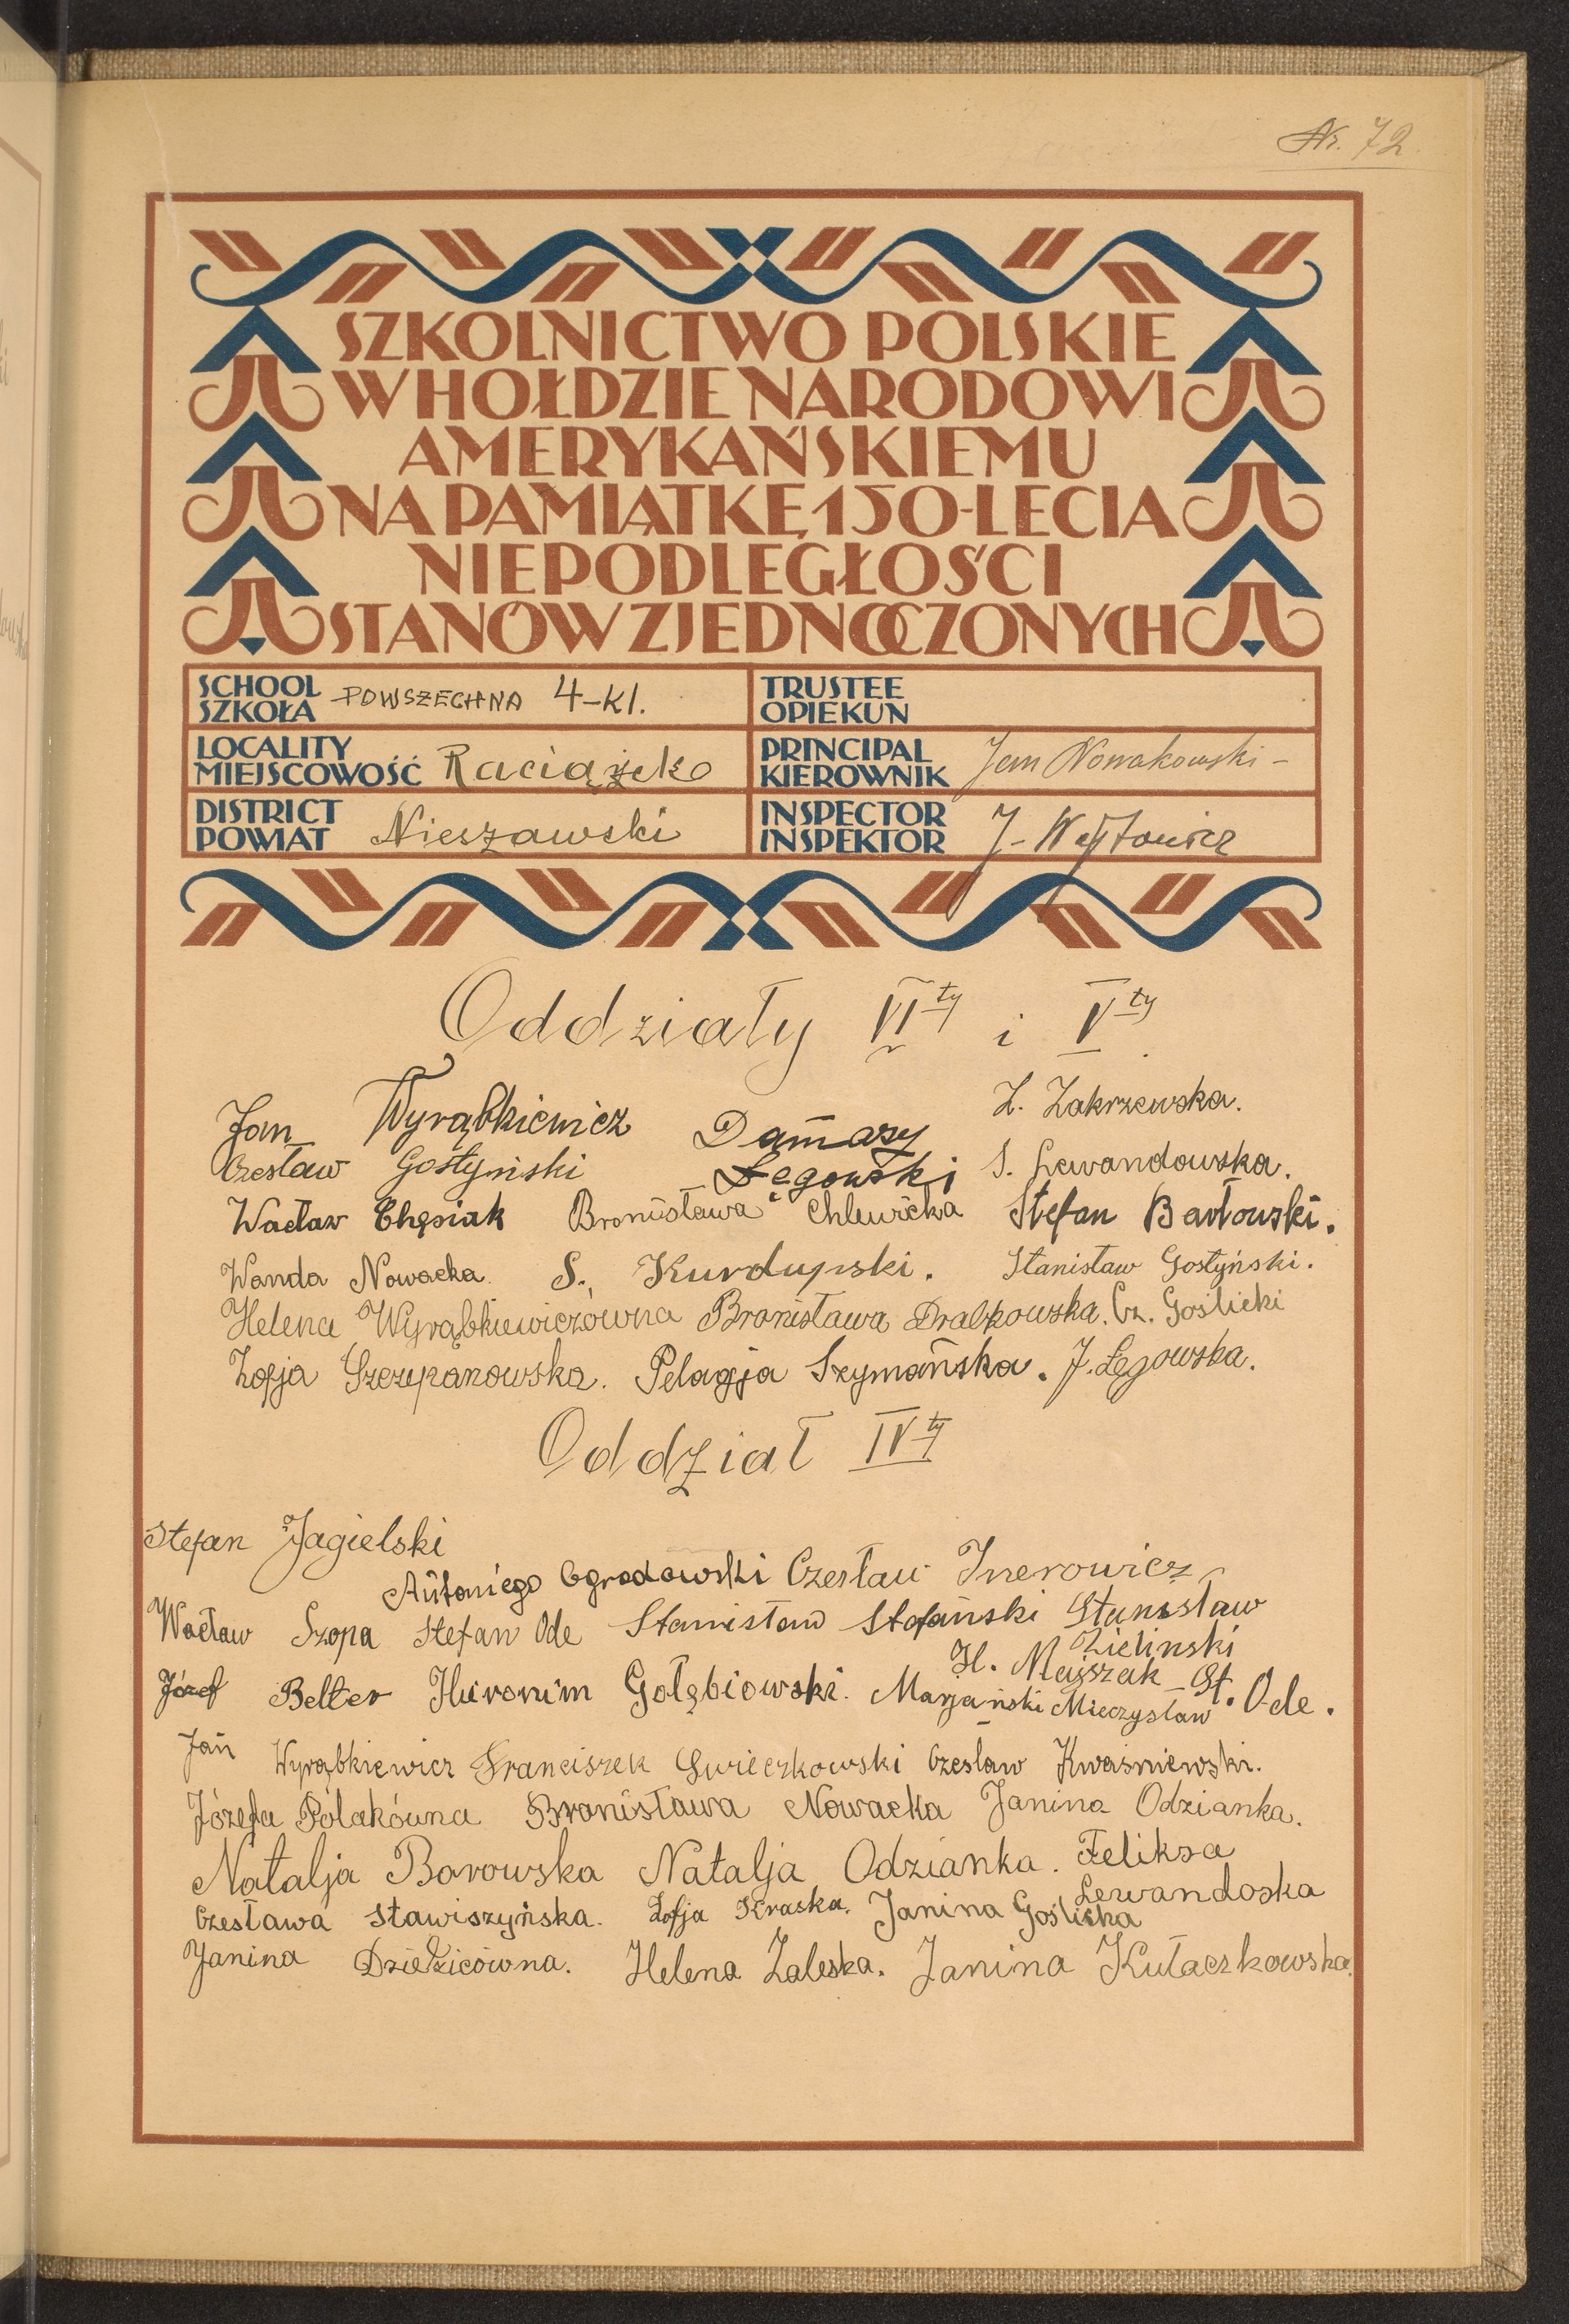 Nr. 72
SZKOLNICTWO POLSKIE
W HOŁDZIE NARODOWI
AMERYKAŃSKIEMU
NA PAMIĄTKĘ 150-LECIA
NIEPODLEGŁOŚCI
STANÓW ZJEDNOCZONYCH
SCHOOL
SZKOŁA POWSZECHNA 4-kl.
TRUSTEE
OPIEKUN
LOCALITY
MIEJSCOWOŚĆ Raciążek
PRINCIPAL
KIEROWNIK Jan Nowakowski -
DISTRICT
POWIAT Nieszawski
INSPECTOR
INSPEKTOR J. Wójtowicz
Oddziały VIty i Vty
Jan Wyrąbkiewicz Damazy Łęgowski Z. Zakrzewska.
Czesław Gostyński S. Lewandowska.
Wacław Chęsiak Bronisława Chlewicka Stefan Bartowski.
Wanda Nowacka. S. Kurdupski. Stanisław Gostyński.
Helena Wyrąbkiewiczówna Bronisława Drabkowska. Cz. Goślicki
Zofja Szczepanowska. Pelagja Szymańska. J. Łęgowska.
Oddział IVty
Stefan Jagielski
Antoniego Ogrodowski Czesław Inerowicz
Wacław Szopa Stefan Ode Stanisław Stefański Stanisław Zieliński
H. Majszak St. Ode.
Józef Belter Hieronim Gołębiowski. Marjański Mieczysław
Jan Wyrąbkiewicz Franciszek Świeczkowski Czesław Kwaśniewski.
Józefa Polakówna Bronisława Nowacka Janina Odzianka.
Natalja Borowska Natalja Odzianka. Feliksa Lewandoska
Czesława Stawiszyńska. Zofja Kraska. Janina Goślicka
Janina Dziedzicówna. Helena Zaleska. Janina Kułaczkowska.